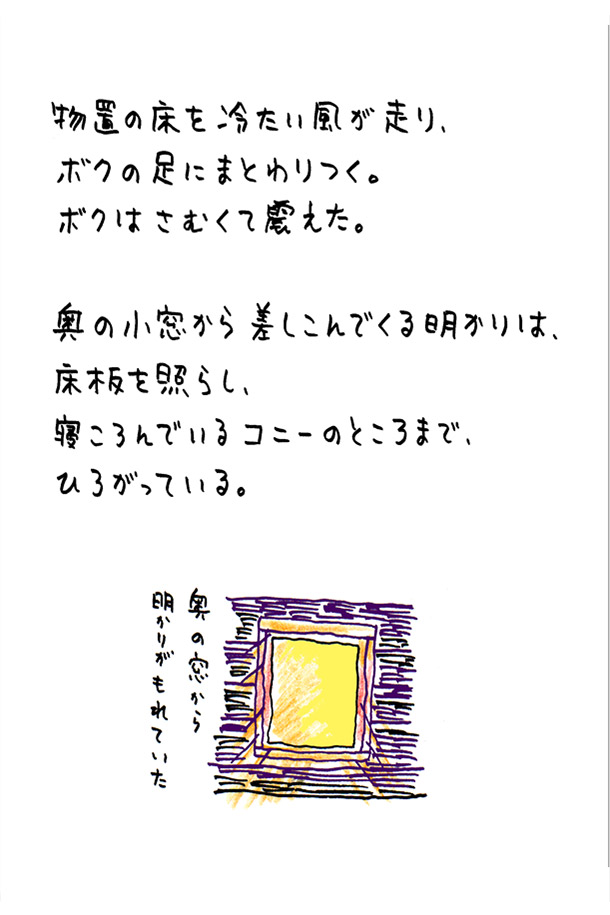 物置の床を冷たい風が走り、
ボクの足にまとわりつく。
ボクはさむくて震えた。
奥の小窓から差しこんでくる明かりは、
床板を照らし、
寝ころんでいるコニーのところまで、
ひろがっている。
奥の窓から
明かりがもれていた